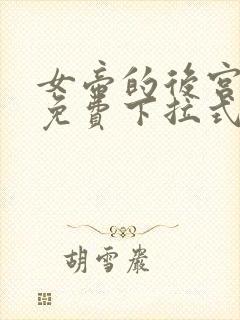 女帝的後宮
免費下拉式
胡雪巖